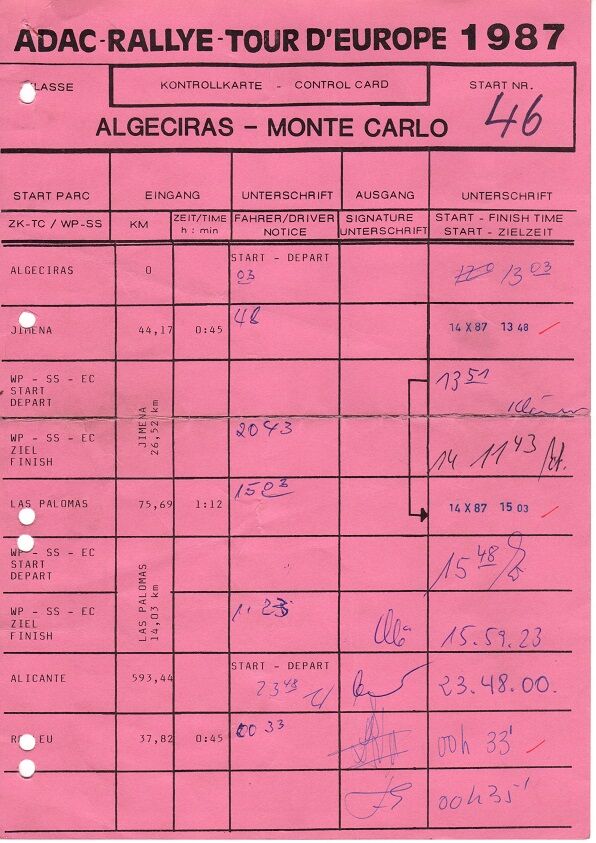 ADAC-RALLYE-TOUR D'EUROPE 1987
KONTROLLKARTE - CONTROL CARD
START NR.
46
ALGECIRAS - MONTE CARLO
START PARC EINGANG UNTERSCHRIFT AUSGANG UNTERSCHRIFT
ZK-TC / WP-SS KM ZEIT/TIME h : min FAHRER/DRIVER NOTICE SIGNATURE UNTERSCHRIFT START - FINISH TIME START - ZIELZEIT
ALGECIRAS 0 START - DEPART 03 13 03
JIMENA 44,17 0:45 48 14 X 87 13 48
WP - SS - EC
START
DEPART
13 51
JIMENA
26,52 km
WP - SS - EC
ZIEL
FINISH
2043
14 11 43
LAS PALOMAS 75,69 1:12 1503 14 X 87 15 03
WP - SS - EC
START
DEPART
15 48
LAS PALOMAS
14,03 km
WP - SS - EC
ZIEL
FINISH
15.59.23
ALICANTE 593,44 START - DEPART 23 48 23.48.00.
37,82 0:45 00 33 00h 33'
00h 35'